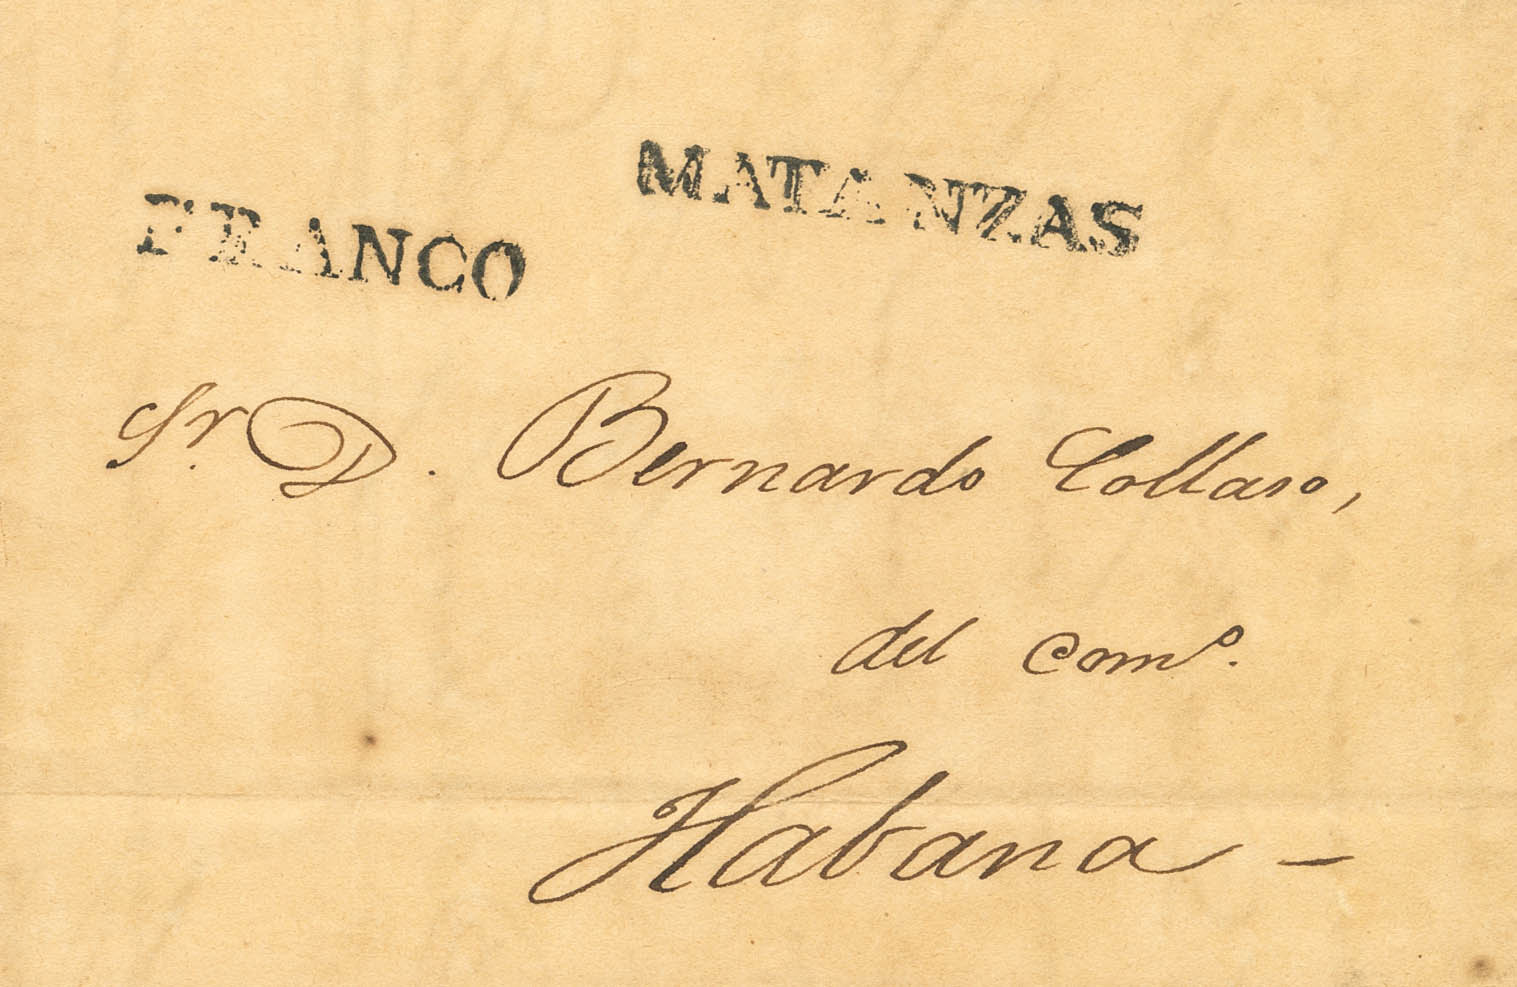 FRANCO
MATANZAS
Sr. D. Bernardo Collaso,
del comº.
Habana —